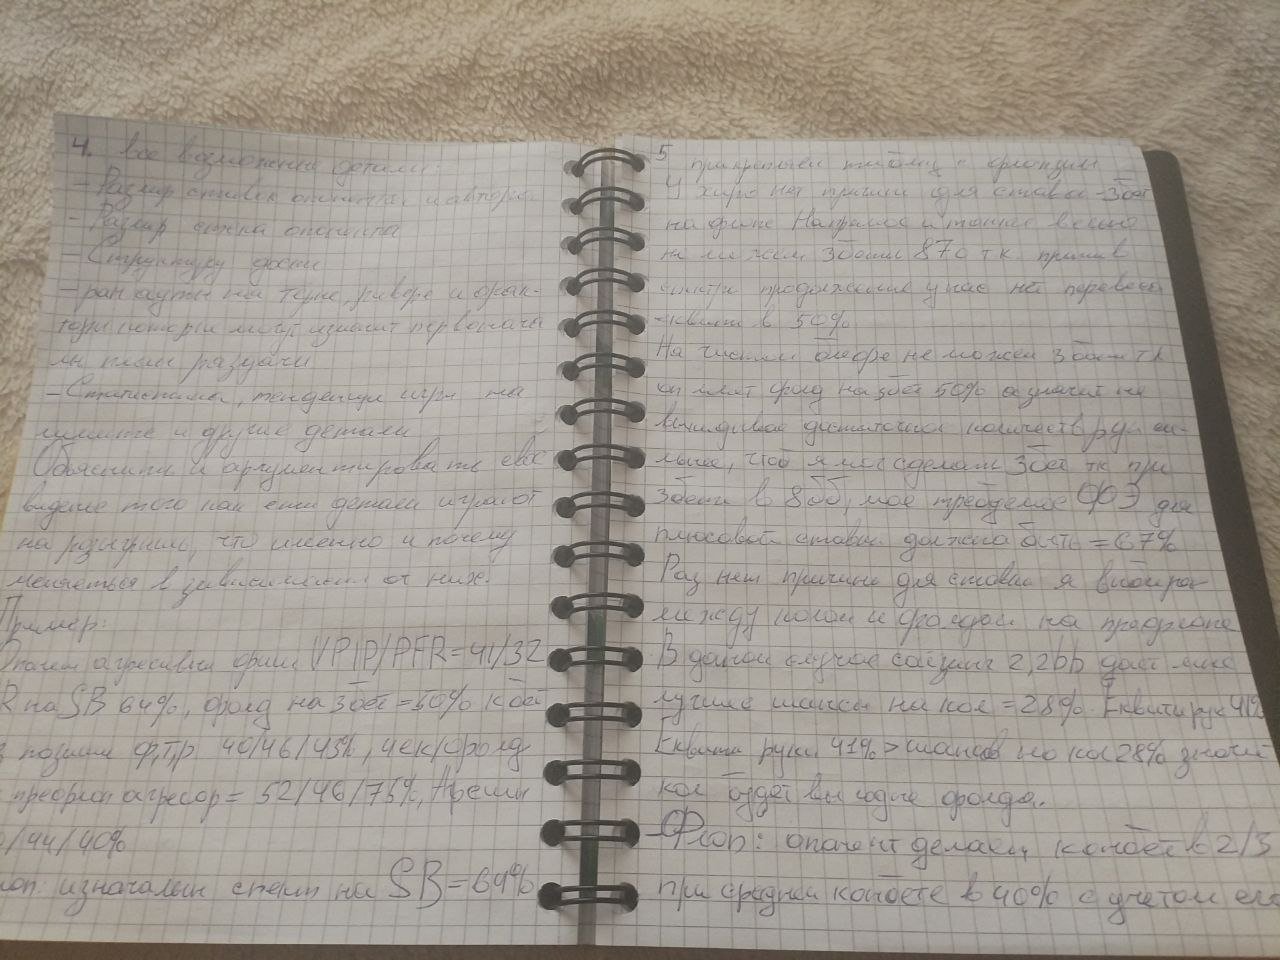 4. все возможные детали:
- Размер ставок оппонента и автора
- Размер стека оппонента
- Структуру доски
- ранауты на терне, ривере и
которые могут изменит первонача
план раздачи
- Статистика, тенденции игры на
лимите и другие детали
Объяснить и аргументировать своё
видение того как эти детали играют
на розыгрыш, что именно и почему
меняеться в зависимости от них.
Пример:
агресивный VPIP/PFR = 41/32
R на SB 64%, фолд на 3бет = 50% кбет
позиции Ф,Т,Р 40/46/43%, чек/фолд
префлоп агресор = 52/46/75%,
/44/40%
изначально на SB = 64%
5
У хиро нет причин для ставки - 3бет
на
не можем 3бетит 87о т.к. против
продолжения у нас нет перевеса
эквити в 50%
На чистом блефе не можем 3бетит т.к
фолд на 3бет 50% а значит не
выкидывает достаточное количество рук
чтоб я мог сделат 3бет тк при
3бете в 8бб, мое требуемое ФФЭ для
плюсовой ставки должна быть = 67%
Раз нет причины для ставки я выбираю
между колом и фолдом на префлопе
В данном случае сайзинг 2,2bb дает мне
лучшие шансы на кол = 28%. Еквити рук 41%
Еквити руки 41% > шансов на кол 28% значит
кол будет выгодне фолда.
- Флоп: опонент делает конбет в 2/3
при средней конбете в 40% с учетом его